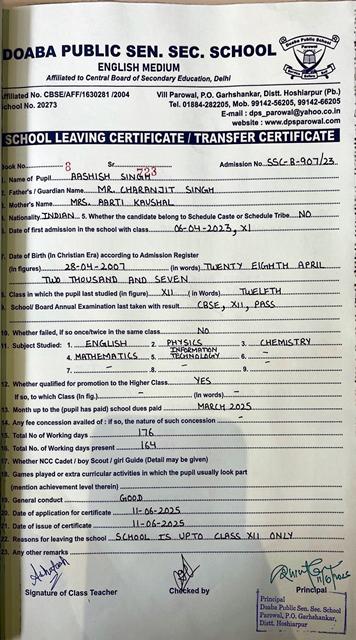 DOABA PUBLIC SEN. SEC. SCHOOL
ENGLISH MEDIUM
Affiliated to Central Board of Secondary Education, Delhi
Affiliated No. CBSE/AFF/1630281 /2004
School No. 20273
Vill Parowal, P.O. Garhshankar, Distt. Hoshiarpur (Pb.)
Tel. 01884-282205, Mob. 99142-56205, 99142-66205
E-mail : dps_parowal@yahoo.co.in
website : www.dpsparowal.com
SCHOOL LEAVING CERTIFICATE / TRANSFER CERTIFICATE
Book No. 8 Sr. 723 Admission No. SSC-B-907/23
1. Name of Pupil AASHISH SINGH
2. Father's / Guardian Name MR. CHARANJIT SINGH
3. Mother's Name MRS. AARTI KAUSHAL
4. Nationality INDIAN 5. Whether the candidate belong to Schedule Caste or Schedule Tribe NO
6. Date of first admission in the school with class 06-04-2023, XI
7. Date of Birth (In Christian Era) according to Admission Register
(In figures) 28-04-2007 (In words) TWENTY EIGHTH APRIL
TWO THOUSAND AND SEVEN
8. Class in which the pupil last studied (in figure) XII (In Words) TWELFTH
9. School/ Board Annual Examination last taken with result CBSE, XII, PASS
10. Whether failed, if so once/twice in the same class NO
11. Subject Studied: 1. ENGLISH 2. PHYSICS 3. CHEMISTRY
4. MATHEMATICS 5. INFORMATION TECHNOLOGY 6. -
7. - 8. - 9. -
12. Whether qualified for promotion to the Higher Class YES
If so, to which Class (In fig.) - (In Words) -
13. Month up to the (pupil has paid) school dues paid MARCH 2025
14. Any fee concession availed : if so, the nature of such concession -
15. Total No of Working days 176
16. Total No. of Working days present 164
17. Whether NCC Cadet / boy Scout / girl Guide (Detail may be given)
18. Games played or extra curricular activities in which the pupil usually look part
(mention achievement level therein)
19. General conduct GOOD
20. Date of application for certificate 11-06-2025
21. Date of issue of certificate 11-06-2025
22. Reasons for leaving the school SCHOOL IS UPTO CLASS XII ONLY
23. Any other remarks
Signature of Class Teacher Checked by Principal
Principal
Doaba Public Sen. Sec. School
Parowal, P.O. Garhshankar,
Distt. Hoshiarpur